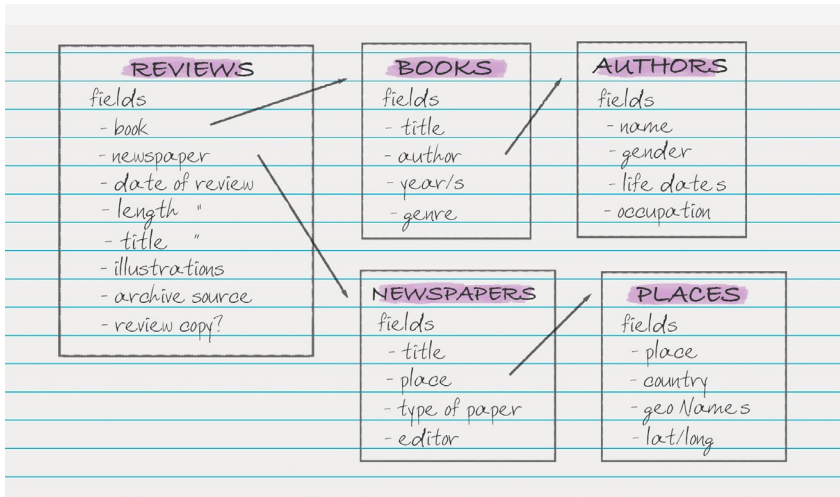 REVIEWS
fields
- book
- newspaper
- date of review
- length "
- title "
- illustrations
- archive source
- review copy?
BOOKS
fields
- title
- author
- year/s
- genre
AUTHORS
fields
- name
- gender
- life dates
- occupation
NEWSPAPERS
fields
- title
- place
- type of paper
- editor
PLACES
fields
- place
- country
- geoNames
- lat/long